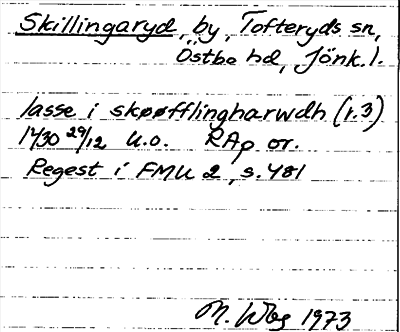 Skillingaryd, by, Tofteryds sn,
Östbo hd, Jönk. l.
lasse i skøøfflingharwdh (r.3)
1430 29/12 u.o. RAp or.
Regest i FMU 2, s. 481
M. Wbg 1973